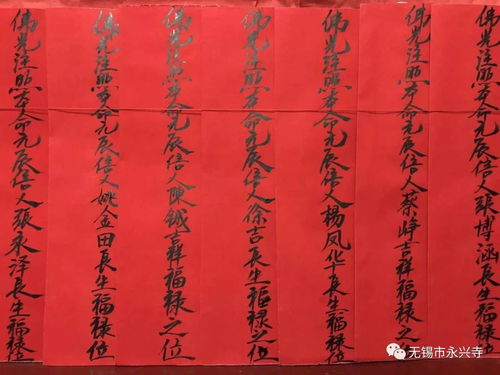 佛光注照本命元辰信人張博涵長生福祿位
佛光注照本命元辰信人蔡崢吉祥福祿之位
佛光注照本命元辰信人楊凤华長生福祿位
佛光注照本命元辰信人徐吉長生福祿之位
佛光注照本命元辰信人陳鉞吉祥福祿之位
佛光注照本命元辰信人姚金田長生福祿位
佛光注照本命元辰信人張永泽長生福祿位
无锡市永兴寺